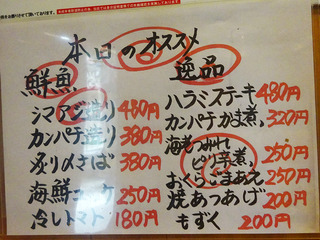 本日のオススメ
鮮魚
シマアジ造り 480円
カンパチ造り 380円
炙り〆さば 380円
海鮮ユッケ 250円
冷しトマト 180円
逸品
ハラミステーキ 480円
カンパチかま煮 320円
海老つみれと里芋煮 250円
おくらごまあえ 250円
焼あつあげ 200円
もずく 200円